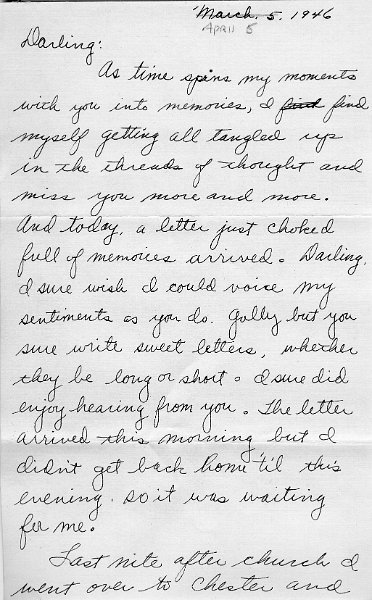 March 5, 1946
APRIL 5
Darling:
As time spins my moments
with you into memories, I find find
myself getting all tangled up
in the threads of thought and
miss you more and more.
And today, a letter just choked
full of memories arrived. Darling,
I sure wish I could voice my
sentiments as you do. Golly but you
sure write sweet letters, whether
they be long or short. I sure did
enjoy hearing from you. The letter
arrived this morning but I
didn't get back home 'til this
evening. so it was waiting
for me.
Last nite after church I
went over to Chester and